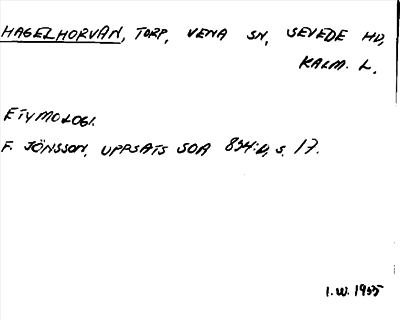 HAGELHORVAN, TORP, VENA SN, SEVEDE HD,
KALM. L.
ETYMOLOGI.
F. JÖNSSON, UPPSATS SOA 894:D, S. 17.
I.W. 1955